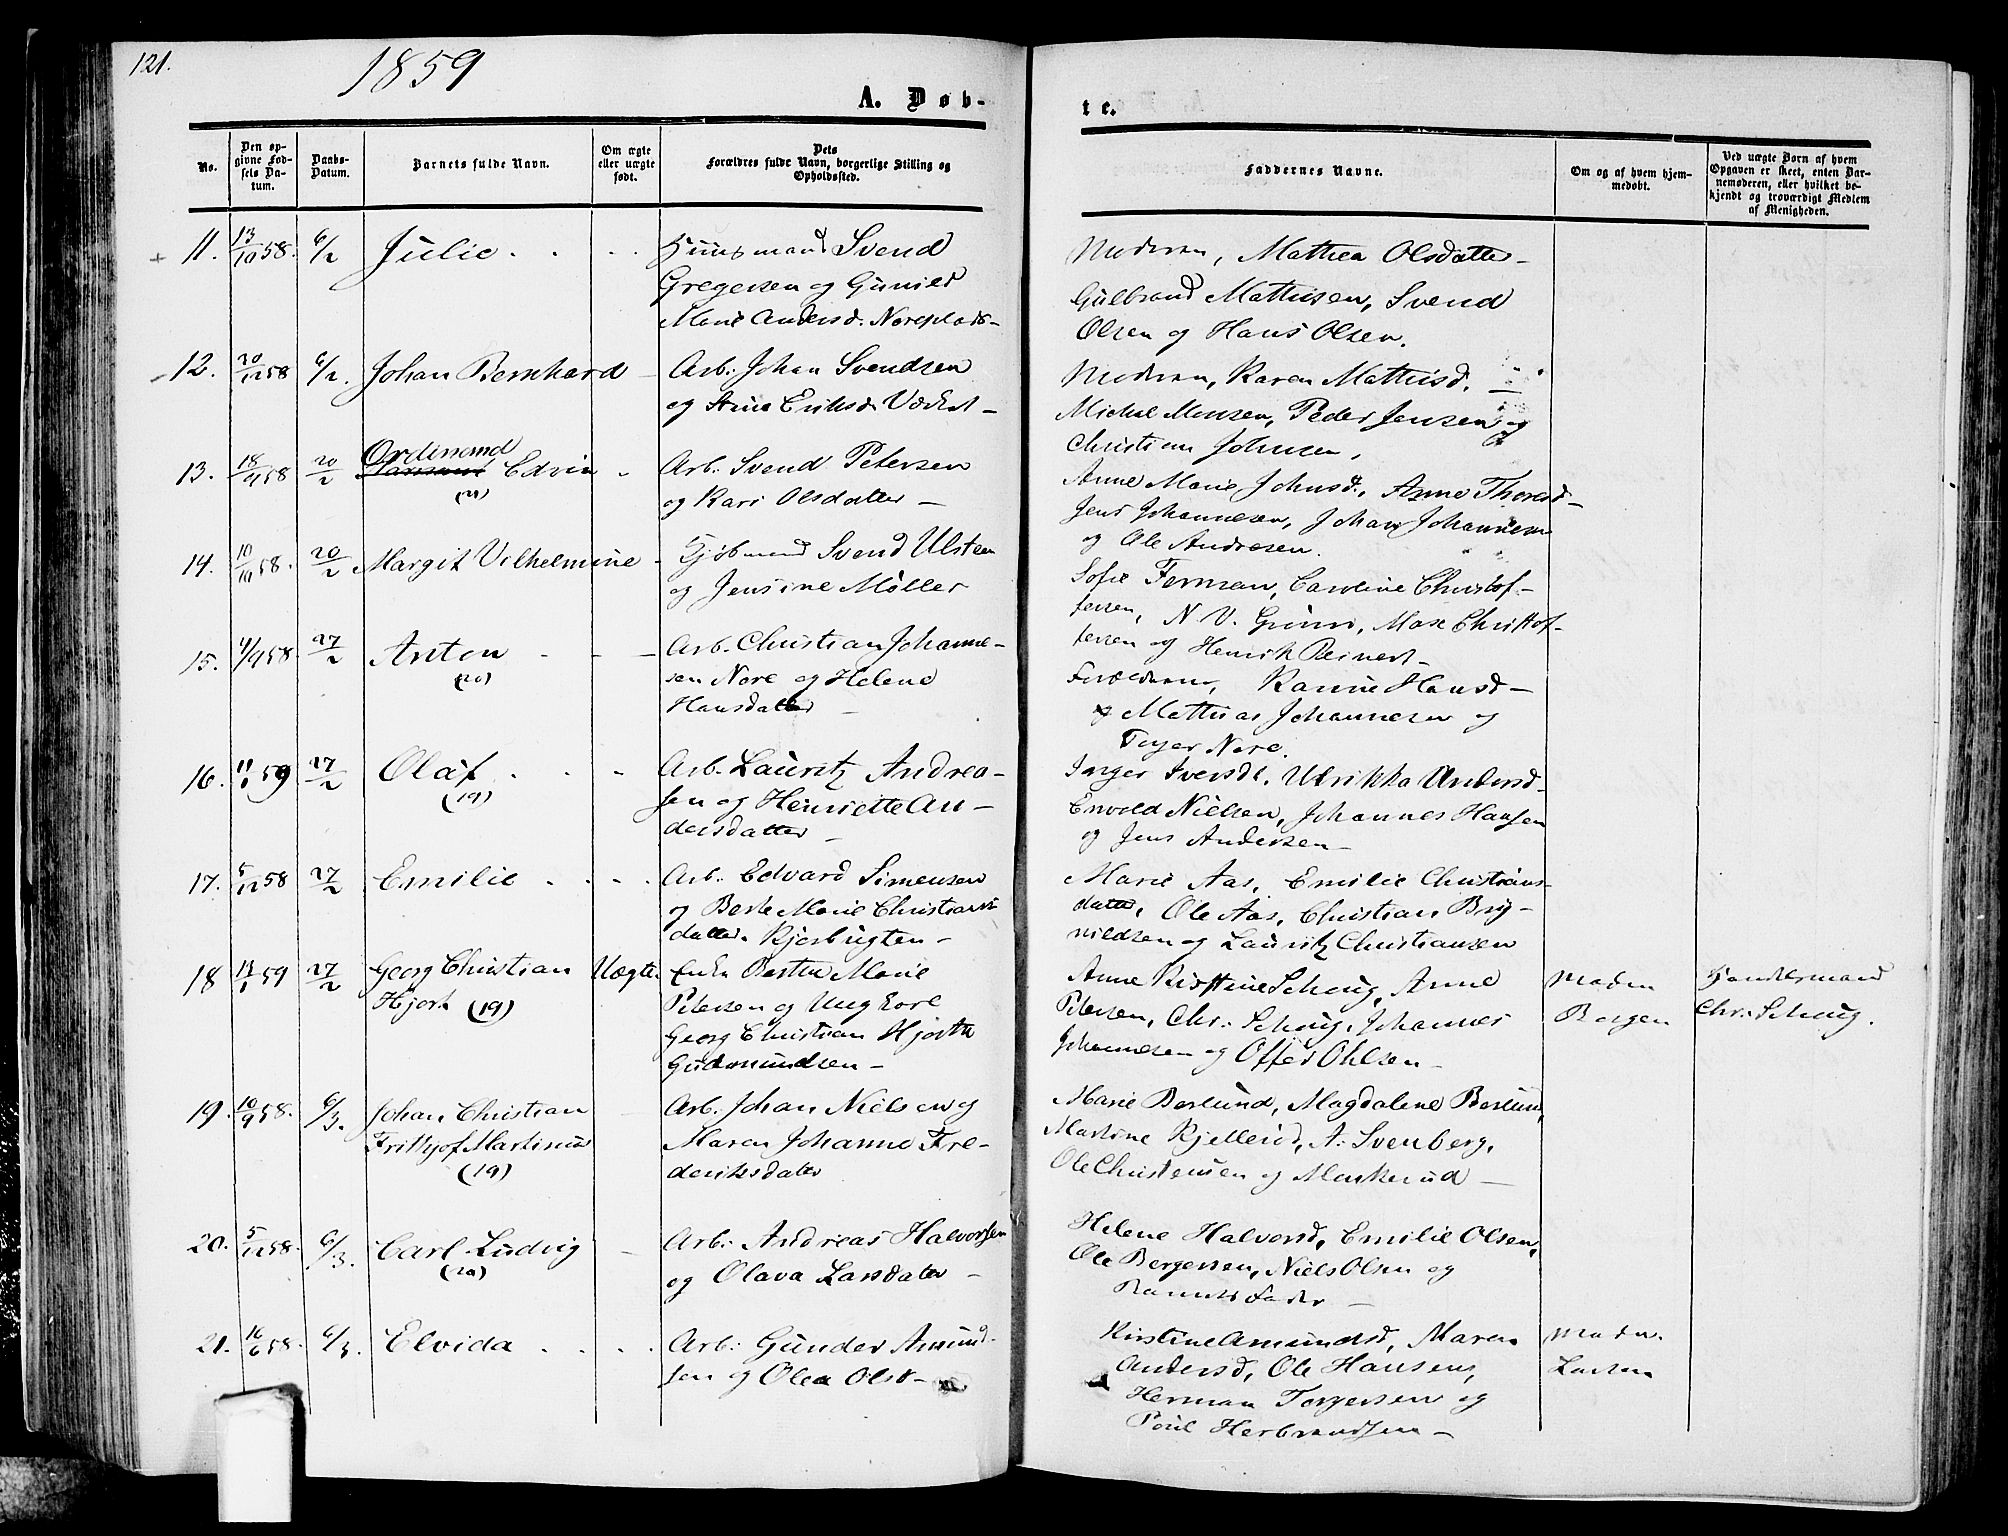 121.
1859
A. Døb-
te.
No.
Den op-
givne Fød-
sels Da-
tum.
Daabs-
Datum.
Barnets fulde Navn.
Om ægte
eller uægte
født.
Dets
Forældres fulde Navn, borgerlige Stilling og
Opholdssted.
Faddernes Navne.
Om og af hvem hjem-
medøbt.
Ved uægte Børn af hvem
Opgaven er skeet, enten Bar-
nemoderen, eller hvilket be-
kjendt og troværdigt Medlem
af Menigheden.
11. 13/10 58. 6/2 Julie
Huusmand Svend
Gregersen og Gunild
Marie Andersd. Noreplads
Moderen, Mathea Olsdatter
Gulbrand Mathisen, Svend
Olsen og Hans Olsen.
12. 20/12 58 6/2. Johan Bernhard
Arb: Johan Svendsen
og Stine Eriksd.
Moderen, Karen Mathisd.
Michal Monsen, Peder Jensen og
Christian Johnsen.
13. 18/9 58 20/2 Ordinand Edvin
(21)
Arb. Svend Petersen
og Kari Olsdatter
Anne Marie Johnsd., Anne Thoresd
Jens Johannesen, Johan Johannesen
og Ole Andresen.
14. 10/10 58. 20/2 Margit Vilhelmine
Kjøbmand Svend Ulsteen
og Jensine Møller
Sofie Ferman, Caroline Christof-
fersen, N. V. Grüner, Max Christof-
fersen og Henrik Reinert
15. 4/9 58. 27/2 Anton
(20)
Arb. Christian Johanne-
sen Nore og Helene
Hansdatter
Forældrene, Karine Hansd
Mathias Johannesen og
Torger Nore.
16. 11/1 59 27/2 Olaf
(19)
Arb. Lauritz Andrea-
sen og Henriette An-
dersdatter
Inger Iversdt., Ulrikka Andersd
Envold Nielsen, Johannes Hansen
og Jens Andersen
17. 5/12 58 27/2 Emilie
Arb. Edvard Simensen
og Berte Marie Christians
datter. Kjerbugten
Marie Aas, Emilie Christians-
datter, Ole Aas, Christian Bry-
nildsen og Lauritz Christiansen
18 13/1 59 27/2 Georg Christian
Hjort (19)
Uægte
Enke Berthe Marie
Petersen og Ungkarl
Georg Christian Hjorth
Gudmundsen
Anne Kirstine Schoug, Anne
Petersen, Chr. Schoug, Johannes
Johannesen og Offer Ohlsen
Madm
Borgen
Handelsmand
Chr. Schoug.
19. 10/9 58. 6/3. Johan Christian
Frithjof Martinius
(19)
Arb. Johan Nielsen og
Maren Johanne Fre-
deriksdatter
Marie Berlund, Magdalene Berlund,
Martine Kjellerød, A. Svenberg,
Ole Christensen og Maskerud
20. 5/12 58. 6/3. Carl Ludvig
(20)
Arb: Andreas Halvorsen
og Olava Larsdatter
Helene Halvorsd, Emilie Olsen,
Ole Bergersen, Niels Olsen og
Barnets Fader
21. 16/6 58. 6/3. Elvida
Arb: Gunder Amund-
sen og Olea Olsd
Kirstine Amundsd, Maren
Andersd, Ole Hansen,
Herman Torgersen og
Poul Herbrandsen
Madm.
Larsen